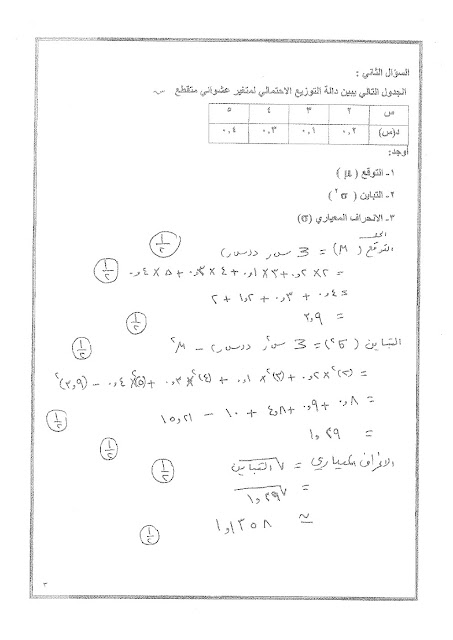 السؤال الثاني :
الجدول التالي يبين دالة التوزيع الاحتمالي لمتغير عشوائي متقطع س
س ٢ ٣ ٤ ٥
د(س) ٠,٢ ٠,١ ٠,٣ ٠,٤
أوجد:
١- التوقع ( μ )
٢- التباين ( σ٢ )
٣- الانحراف المعياري (σ)
الحل
التوقع ( μ ) = ∑ سر د(سر) ١/٢
= ٢ × ٠,٢ + ٣ × ٠,١ + ٤ × ٠,٣ + ٥ × ٠,٤ ١/٢
= ٠,٤ + ٠,٣ + ١,٢ + ٢
= ٣,٩ ١/٢
التباين ( σ٢ ) = ∑ سر٢ د(سر) - μ٢ ١/٢
= (٢)٢ × ٠,٢ + (٣)٢ × ٠,١ + (٤)٢ × ٠,٣ + (٥)٢ × ٠,٤ - (٣,٩)٢
= ٠,٨ + ٠,٩ + ٤,٨ + ١٠ - ١٥,٢١ ١/٢
= ١,٢٩ ١/٢
الانحراف المعياري = √التباين ١/٢
= √١,٢٩
≃ ١,١٣٥٨ ١/٢
٣